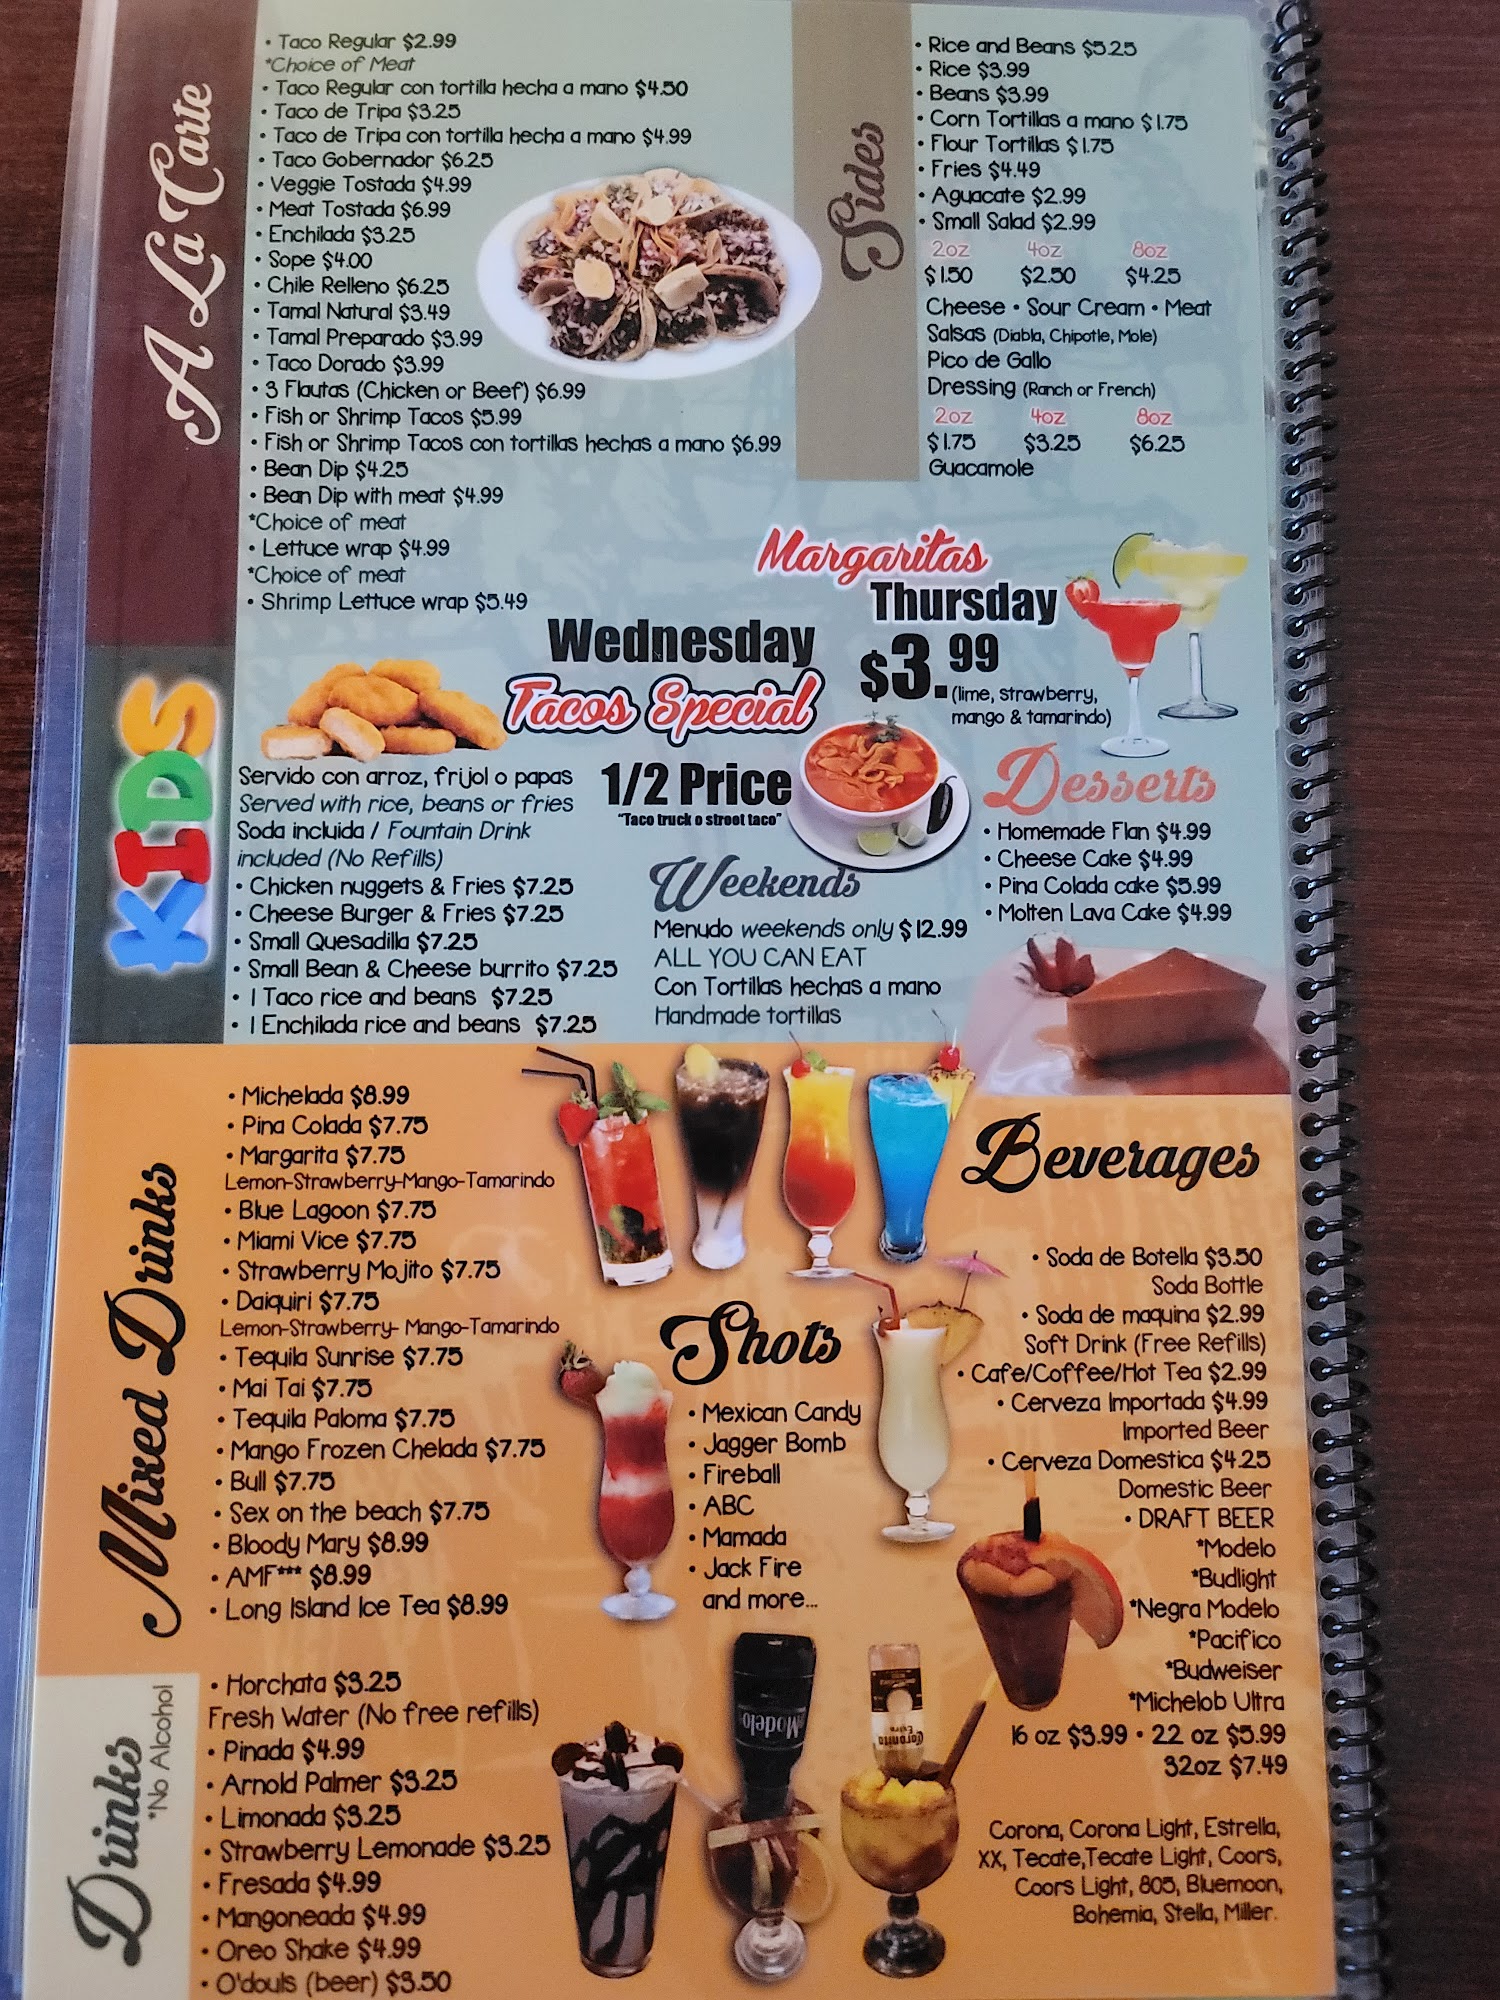 A La Carte
• Taco Regular $2.99
*Choice of Meat
• Taco Regular con tortilla hecha a mano $4.50
• Taco de Tripa $3.25
• Taco de Tripa con tortilla hecha a mano $4.99
• Taco Gobernador $6.25
• Veggie Tostada $4.99
• Meat Tostada $6.99
• Enchilada $3.25
• Sope $4.00
• Chile Relleno $6.25
• Tamal Natural $3.49
• Tamal Preparado $3.99
• Taco Dorado $3.99
• 3 Flautas (Chicken or Beef) $6.99
• Fish or Shrimp Tacos $5.99
• Fish or Shrimp Tacos con tortillas hechas a mano $6.99
• Bean Dip $4.25
• Bean Dip with meat $4.99
*Choice of meat
• Lettuce wrap $4.99
*Choice of meat
• Shrimp Lettuce wrap $5.49
Sides
• Rice and Beans $5.25
• Rice $3.99
• Beans $3.99
• Corn Tortillas a mano $1.75
• Flour Tortillas $1.75
• Fries $4.49
• Aguacate $2.99
• Small Salad $2.99
2oz 4oz 8oz
$1.50 $2.50 $4.25
Cheese • Sour Cream • Meat
Salsas (Diabla, Chipotle, Mole)
Pico de Gallo
Dressing (Ranch or French)
2oz 4oz 8oz
$1.75 $3.25 $6.25
Guacamole
Margaritas
Thursday
$3.99
(lime, strawberry,
mango & tamarindo)
Wednesday
Tacos Special
1/2 Price
"Taco truck o street taco"
KIDS
Servido con arroz, frijol o papas
Served with rice, beans or fries
Soda incluida / Fountain Drink
included (No Refills)
• Chicken nuggets & Fries $7.25
• Cheese Burger & Fries $7.25
• Small Quesadilla $7.25
• Small Bean & Cheese burrito $7.25
• 1 Taco rice and beans $7.25
• 1 Enchilada rice and beans $7.25
Weekends
Menudo weekends only $12.99
ALL YOU CAN EAT
Con Tortillas hechas a mano
Handmade tortillas
Desserts
• Homemade Flan $4.99
• Cheese Cake $4.99
• Pina Colada cake $5.99
• Molten Lava Cake $4.99
Mixed Drinks
• Michelada $8.99
• Pina Colada $7.75
• Margarita $7.75
Lemon-Strawberry-Mango-Tamarindo
• Blue Lagoon $7.75
• Miami Vice $7.75
• Strawberry Mojito $7.75
• Daiquiri $7.75
Lemon-Strawberry- Mango-Tamarindo
• Tequila Sunrise $7.75
• Mai Tai $7.75
• Tequila Paloma $7.75
• Mango Frozen Chelada $7.75
• Bull $7.75
• Sex on the beach $7.75
• Bloody Mary $8.99
• AMF*** $8.99
• Long Island Ice Tea $8.99
Shots
• Mexican Candy
• Jagger Bomb
• Fireball
• ABC
• Mamada
• Jack Fire
and more...
Beverages
• Soda de Botella $3.50
Soda Bottle
• Soda de maquina $2.99
Soft Drink (Free Refills)
• Cafe/Coffee/Hot Tea $2.99
• Cerveza Importada $4.99
Imported Beer
• Cerveza Domestica $4.25
Domestic Beer
• DRAFT BEER
*Modelo
*Budlight
*Negra Modelo
*Pacifico
*Budweiser
*Michelob Ultra
16 oz $3.99 • 22 oz $5.99
32oz $7.49
Corona, Corona Light, Estrella,
XX, Tecate,Tecate Light, Coors,
Coors Light, 805, Bluemoon,
Bohemia, Stella, Miller.
Drinks
*No Alcohol
• Horchata $3.25
Fresh Water (No free refills)
• Pinada $4.99
• Arnold Palmer $3.25
• Limonada $3.25
• Strawberry Lemonade $3.25
• Fresada $4.99
• Mangoneada $4.99
• Oreo Shake $4.99
• O'douls (beer) $3.50
Modelo
Coronita
Extra